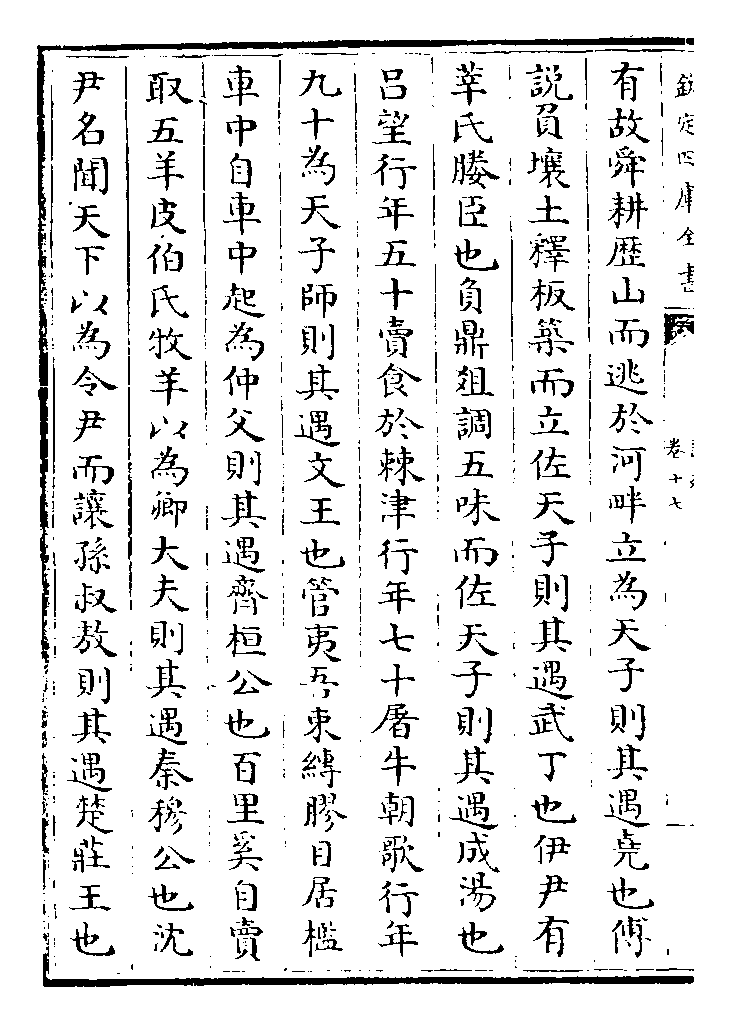 欽定四庫全書
卷十七
有故舜耕歴山而逃於河畔立為天子則其遇堯也傅
説負壤土釋板築而立佐天子則其遇武丁也伊尹有
莘氏媵臣也負鼎俎調五味而佐天子則其遇成湯也
吕望行年五十賣食於棘津行年七十屠牛朝歌行年
九十為天子師則其遇文王也管夷吾束縛膠目居檻
車中自車中起為仲父則其遇齊桓公也百里奚自賣
取五羊皮伯氏牧羊以為卿大夫則其遇秦穆公也沈
尹名聞天下以為令尹而讓孫叔敖則其遇楚莊王也